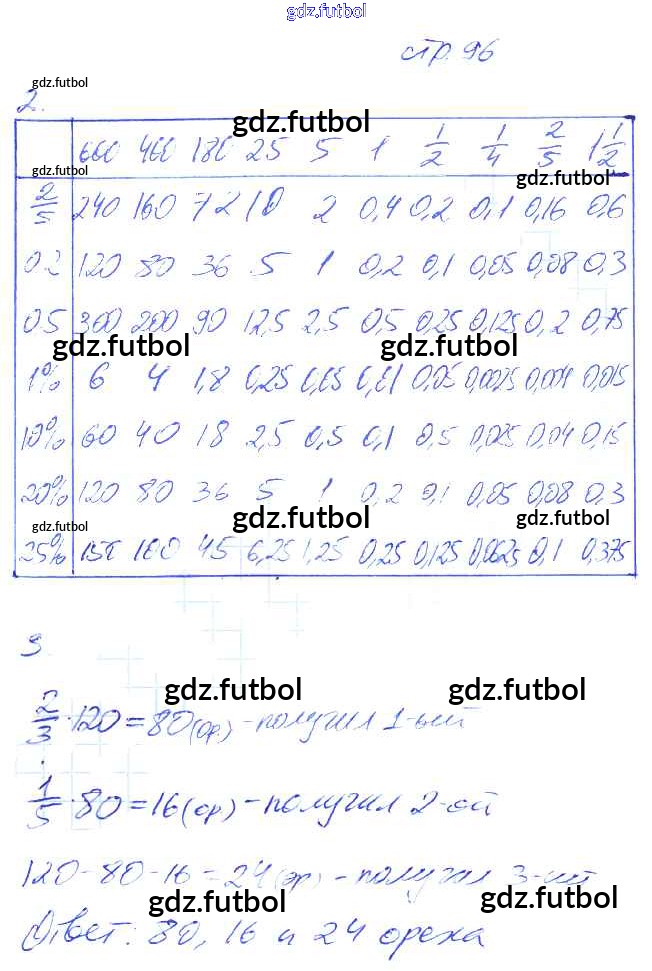 gdz.futbol
стр. 96
gdz.futbol
2.
gdz.futbol
600 400 180 25 5 1 1/2 1/4 2/5 1 1/2
gdz.futbol gdz.futbol
2/5 240 160 72 10 2 0,4 0,2 0,1 0,16 0,6
0.2 120 80 36 5 1 0,2 0,1 0,05 0,08 0,3
0.5 300 200 90 12,5 2,5 0,5 0,25 0,125 0,2 0,75
gdz.futbol gdz.futbol
1% 6 4 1,8 0,25 0,05 0,01 0,05 0,0025 0,004 0,015
10% 60 40 18 2,5 0,5 0,1 0,5 0,025 0,04 0,15
20% 120 80 36 5 1 0,2 0,1 0,05 0,08 0,3
gdz.futbol gdz.futbol gdz.futbol
25% 150 100 45 6,25 1,25 0,25 0,125 0,0625 0,1 0,375
3.
gdz.futbol gdz.futbol
2/3 · 120 = 80 (ор.) - получил 1-ый
1/5 · 80 = 16 (ор.) - получил 2-ой
gdz.futbol gdz.futbol
120 - 80 - 16 = 24 (ор.) - получил 3-ий
Ответ: 80, 16 и 24 ореха